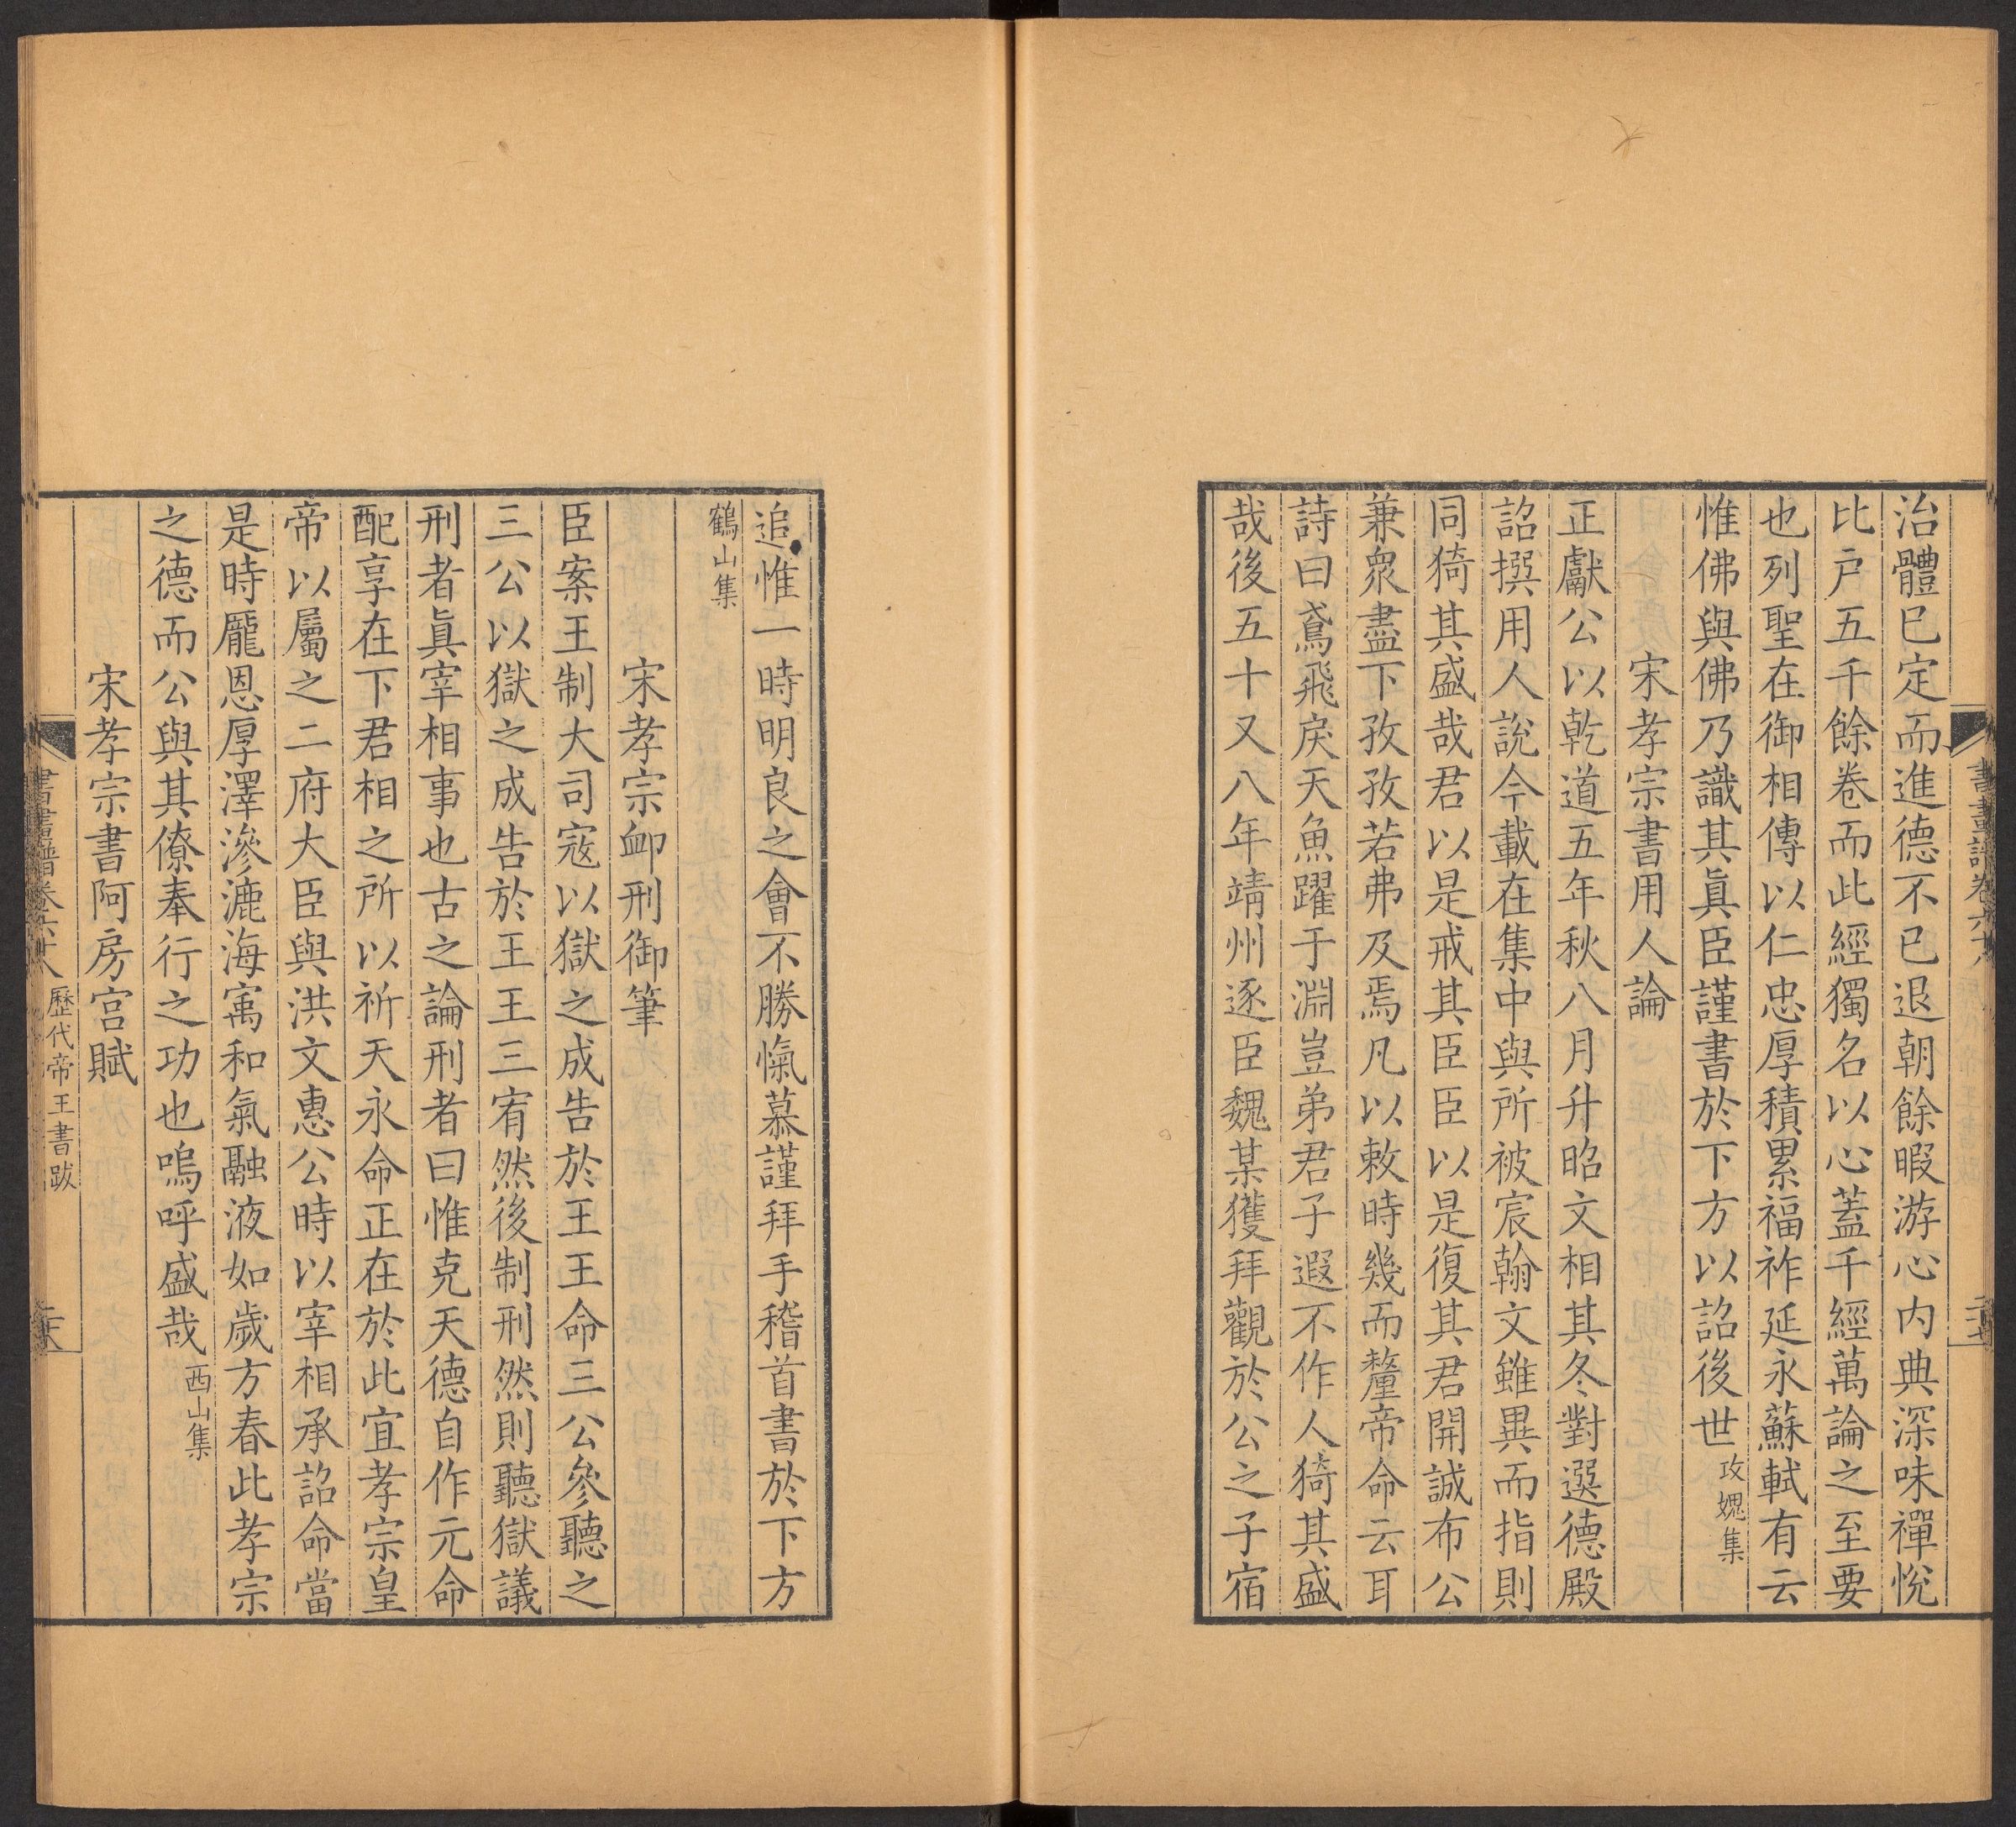 治體已定而進德不已退朝餘暇游心内典深味禪悅
比戶五千餘卷而此經獨名以心蓋千經萬論之至要
也列聖在御相傳以仁忠厚積累福祚延永蘇軾有云
惟佛與佛乃識其眞臣謹書於下方以詔後世攻媿集
宋孝宗書用人論
正獻公以乾道五年秋八月升昭文相其冬對選德殿
詔撰用人說今載在集中與所被宸翰文雖異而指則
同猗其盛哉君以是戒其臣臣以是復其君開誠布公
兼衆盡下孜孜若弗及焉凡以敕時幾而釐帝命云耳
詩曰鳶飛戾天魚躍于淵豈弟君子遐不作人猗其盛
哉後五十又八年靖州逐臣魏某獲拜觀於公之子宿
追惟一時明良之會不勝愾慕謹拜手稽首書於下方
鶴山集
宋孝宗卹刑御筆
臣案王制大司寇以獄之成告於王王命三公參聽之
三公以獄之成告於王王三宥然後制刑然則聽獄議
刑者眞宰相事也古之論刑者曰惟克天德自作元命
配享在下君相之所以祈天永命正在於此宜孝宗皇
帝以屬之二府大臣與洪文惠公時以宰相承詔命當
是時厖恩厚澤滲漉海㝢和氣融液如歲方春此孝宗
之德而公與其僚奉行之功也嗚呼盛哉西山集
宋孝宗書阿房宮賦
書畫譜卷六十八 歷代帝王書跋